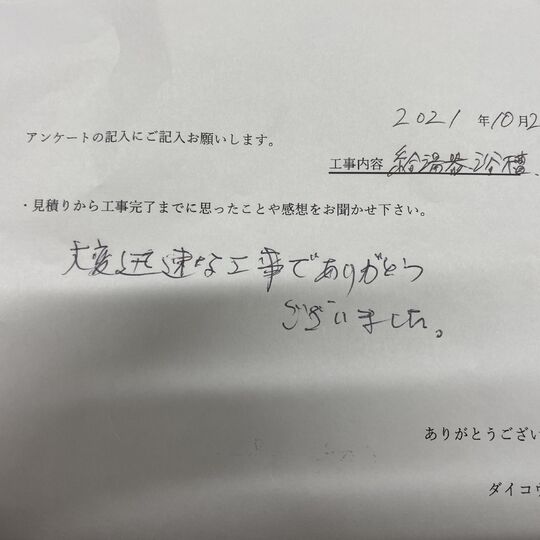 2021 年10月2
アンケートの記入にご記入お願いします。
工事内容 給湯器、浴槽、
・見積りから工事完了までに思ったことや感想をお聞かせ下さい。
大変迅速な工事でありがとう
ございました。
ありがとうござい
ダイコウ